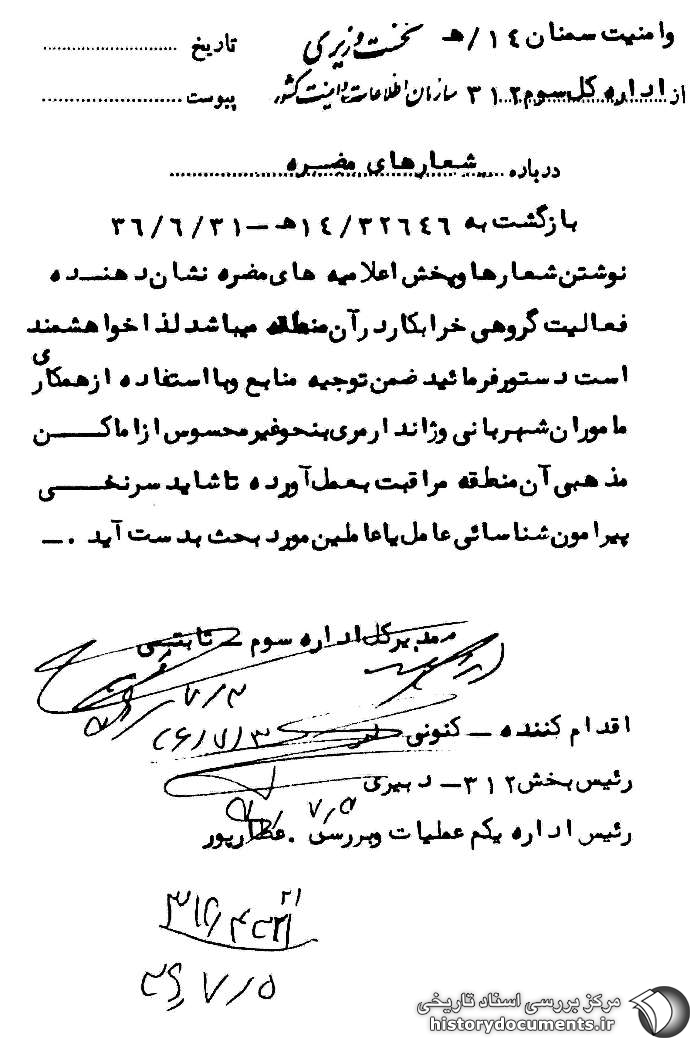 وامنیت سمنان ۱۴/هـ نخست وزیری تاریخ
از اداره کل سوم ۳۱۲ سازمان اطلاعات و امنیت کشور پیوست
درباره شعارهای مضره
بازگشت به ۱۴/۳۲۶۴۶هـ -۳۶/۶/۳۱
نوشتن شعارها وپخش اعلامیه های مضره نشان دهنده
فعالیت گروهی خرابکار درآن منطقه میباشد لذا خواهشمند
است دستورفرمائید ضمن توجیه منابع وبااستفاده ازهمکاری
ماموران شهربانی وژاندارمری بنحوغیرمحسوس ازاماکن
مذهبی آن منطقه مراقبت بعمل آورده تاشاید سرنخی
پیرامون شناسائی عامل یاعاملین مورد بحث بدست آید .-
مدیرکل اداره سوم - ثابتی
۷/۳
اقدام کننده - کنونی
رئیس بخش ۳۱۲ - دبیری
۷/۵
رئیس اداره یکم عملیات وبررسی . عطارپور
۲۱
۳۶/۷/۵
مرکز بررسی اسناد تاریخی
historydocuments.ir